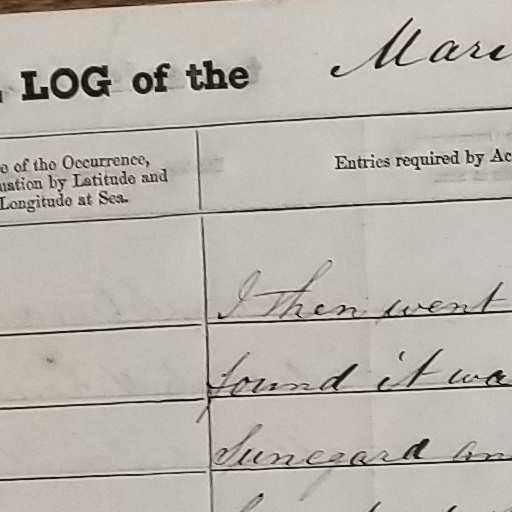 LOG of the Mari
e of the Occurrence,
uation by Latitude and
Longitude at Sea.
Entries required by Ac
I then went
found it wa
an